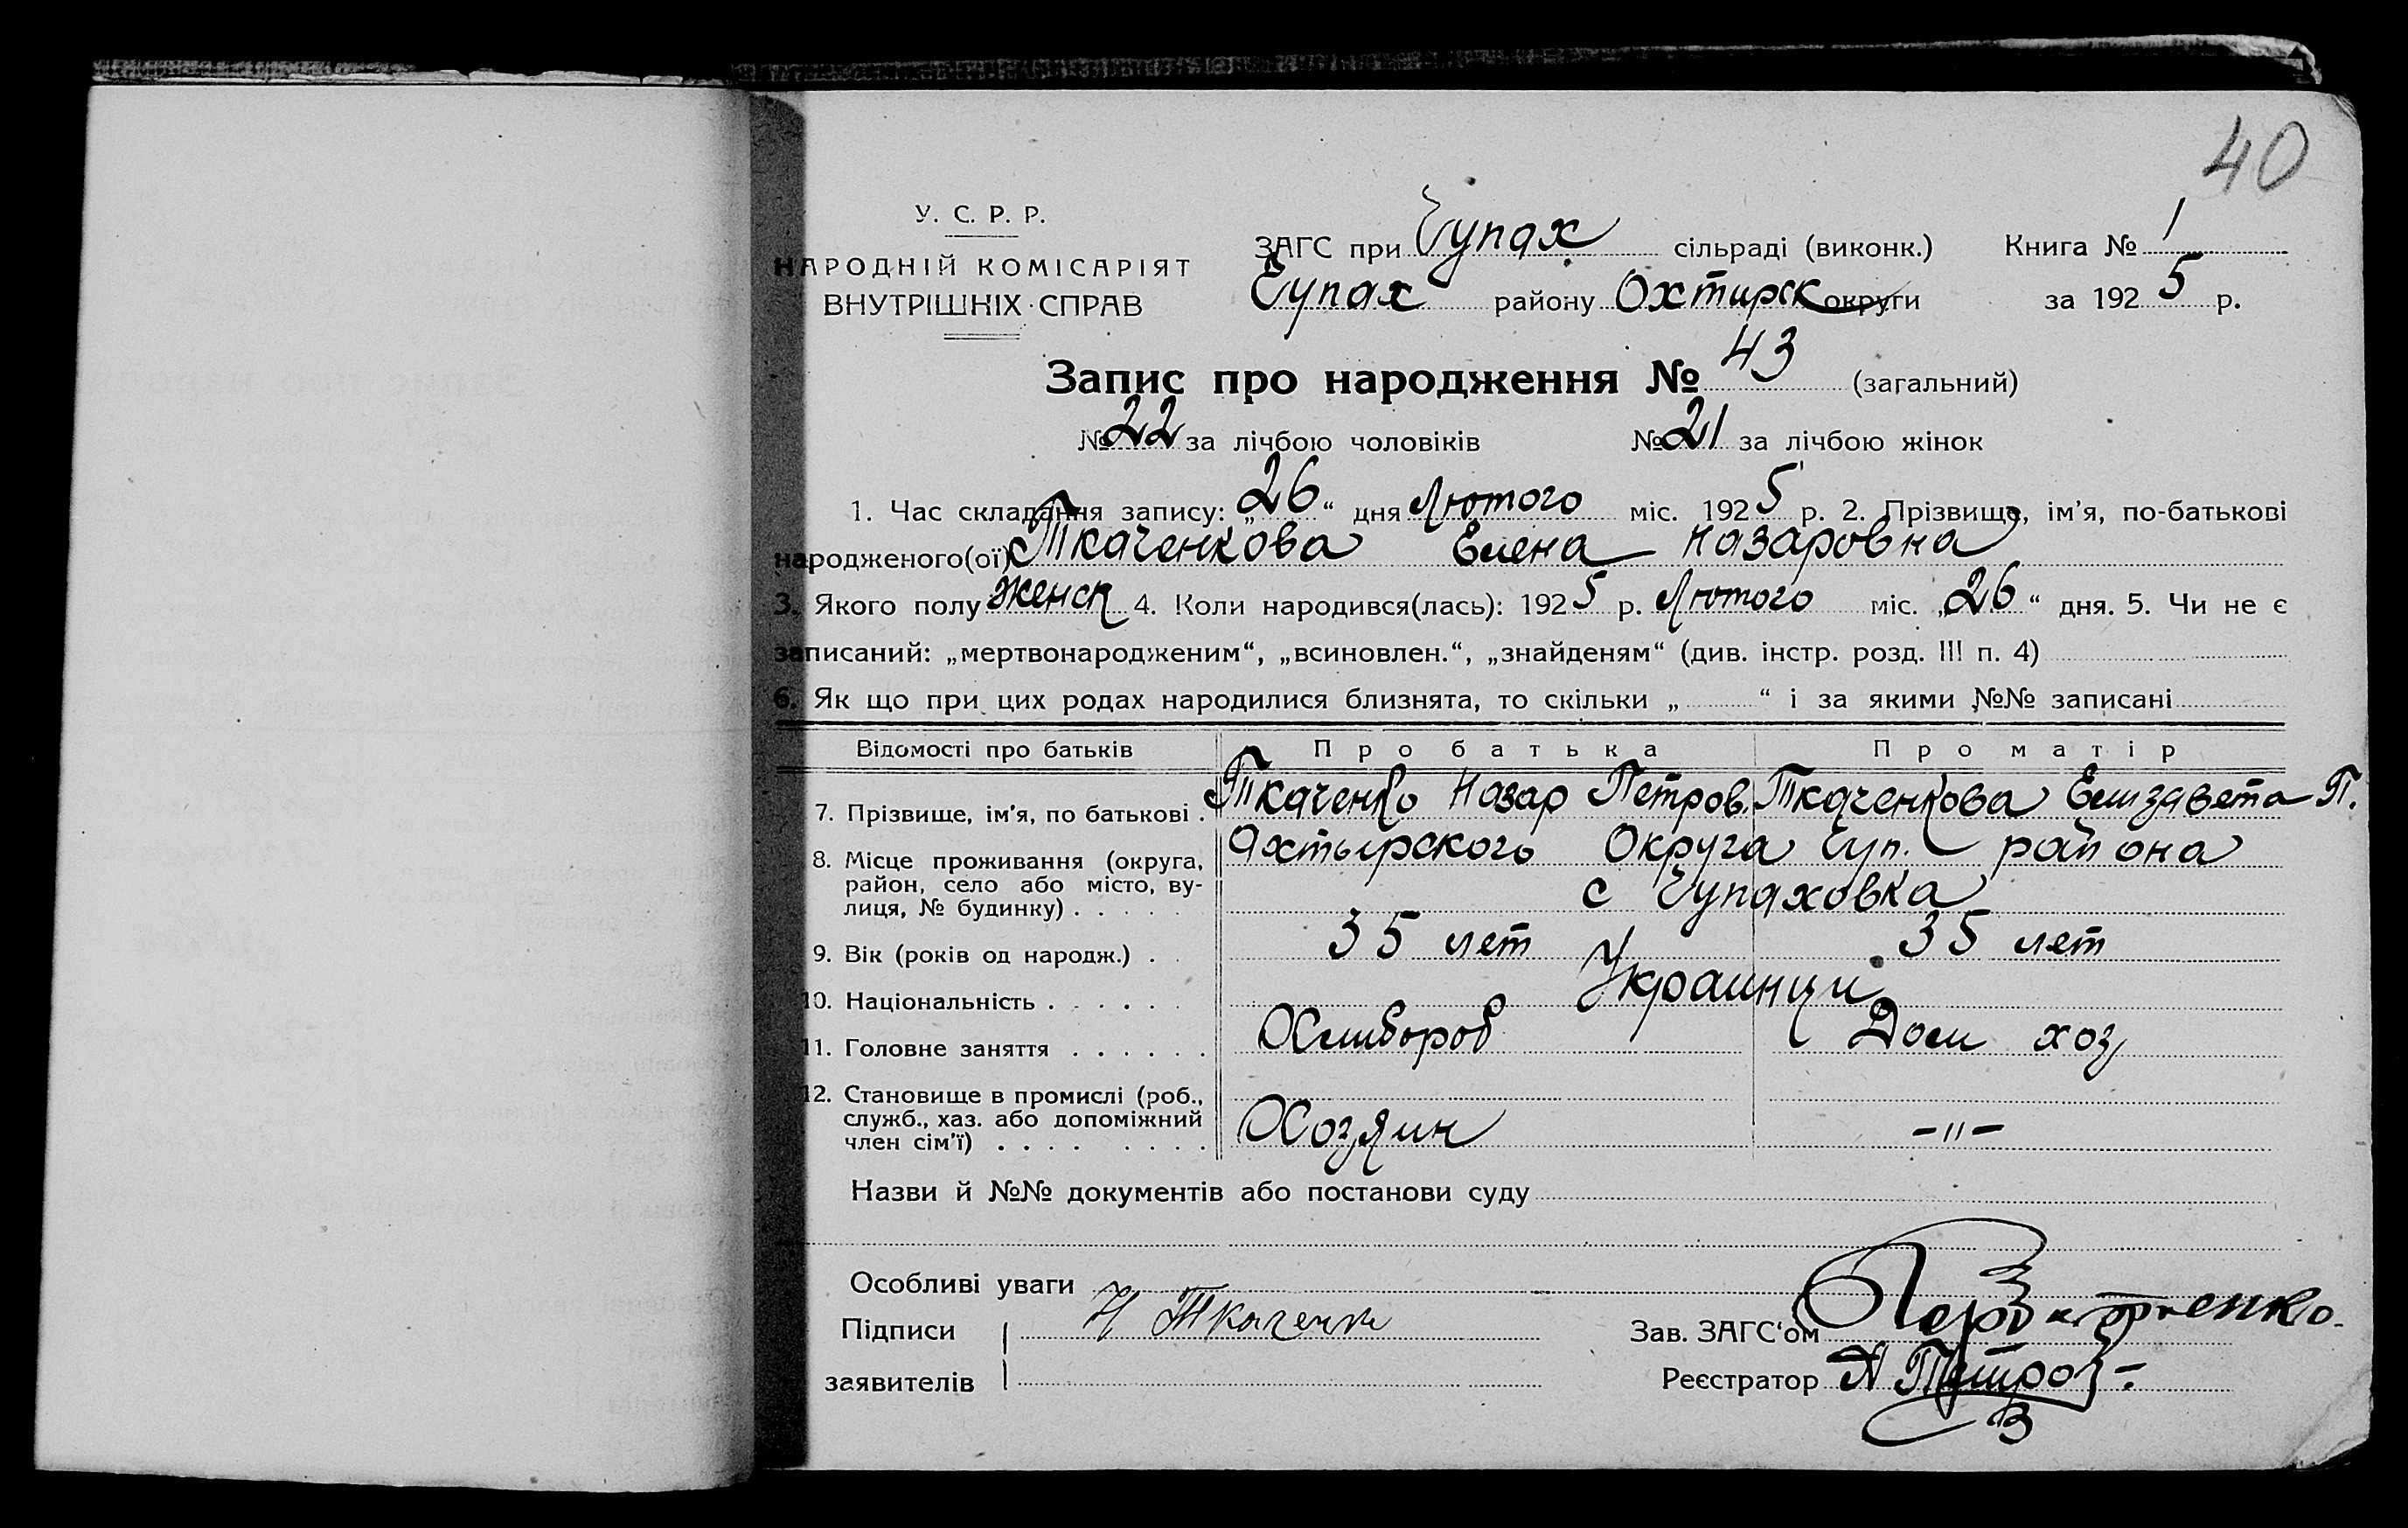 40
У. С. Р. Р.
НАРОДНІЙ КОМІСАРІЯТ
ВНУТРІШНІХ СПРАВ
ЗАГС при Чупах сільраді (виконк.) Книга № 1
Чупах району Охтирск округи за 1925 р.
Запис про народження № 43 (загальний)
№ 22 за лічбою чоловіків № 21 за лічбою жінок
1. Час складання запису: „26“ дня Лютого міс. 1925 р. 2. Прізвище, ім’я, по-батькові
народженого(ої) Ткаченкова Елена Назаровна
3. Якого полу женск 4. Коли народився(лась): 1925 р. Лютого міс. „26“ дня. 5. Чи не є
записаний: „мертвонародженим“, „всиновлен.“, „знайденям“ (див. інстр. розд. III п. 4)
6. Як що при цих родах народилися близнята, то скільки „ “ і за якими №№ записані
Відомості про батьків Про батька Про матір
7. Прізвище, ім’я, по батькові . Ткаченко Назар Петров. Ткаченкова Елизавета П.
8. Місце проживання (округа, Ахтырского Округа Чуп. района
район, село або місто, ву-
лиця, № будинку) . . . . . с Чупаховка
9. Вік (років од народж.) . . 35 лет 35 лет
10. Національність . . . . . . Украинци
11. Головне заняття . . . . . . Хлибороб Дом хоз
12. Становище в промислі (роб.,
служб., хаз. або допоміжний
член сім’ї) . . . . . . . . Хозяин -"-
Назви й №№ документів або постанови суду
Особливі уваги
Підписи Н Ткаченко
Зав. ЗАГС‘ом
заявителів
Реєстратор А Петров